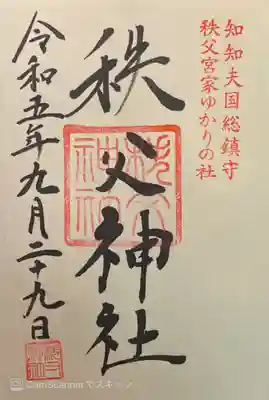 知知夫国総鎮守
秩父宮家ゆかりの社
秩父神社
令和五年九月二十九日
秩父神社
CamScannerでスキャン